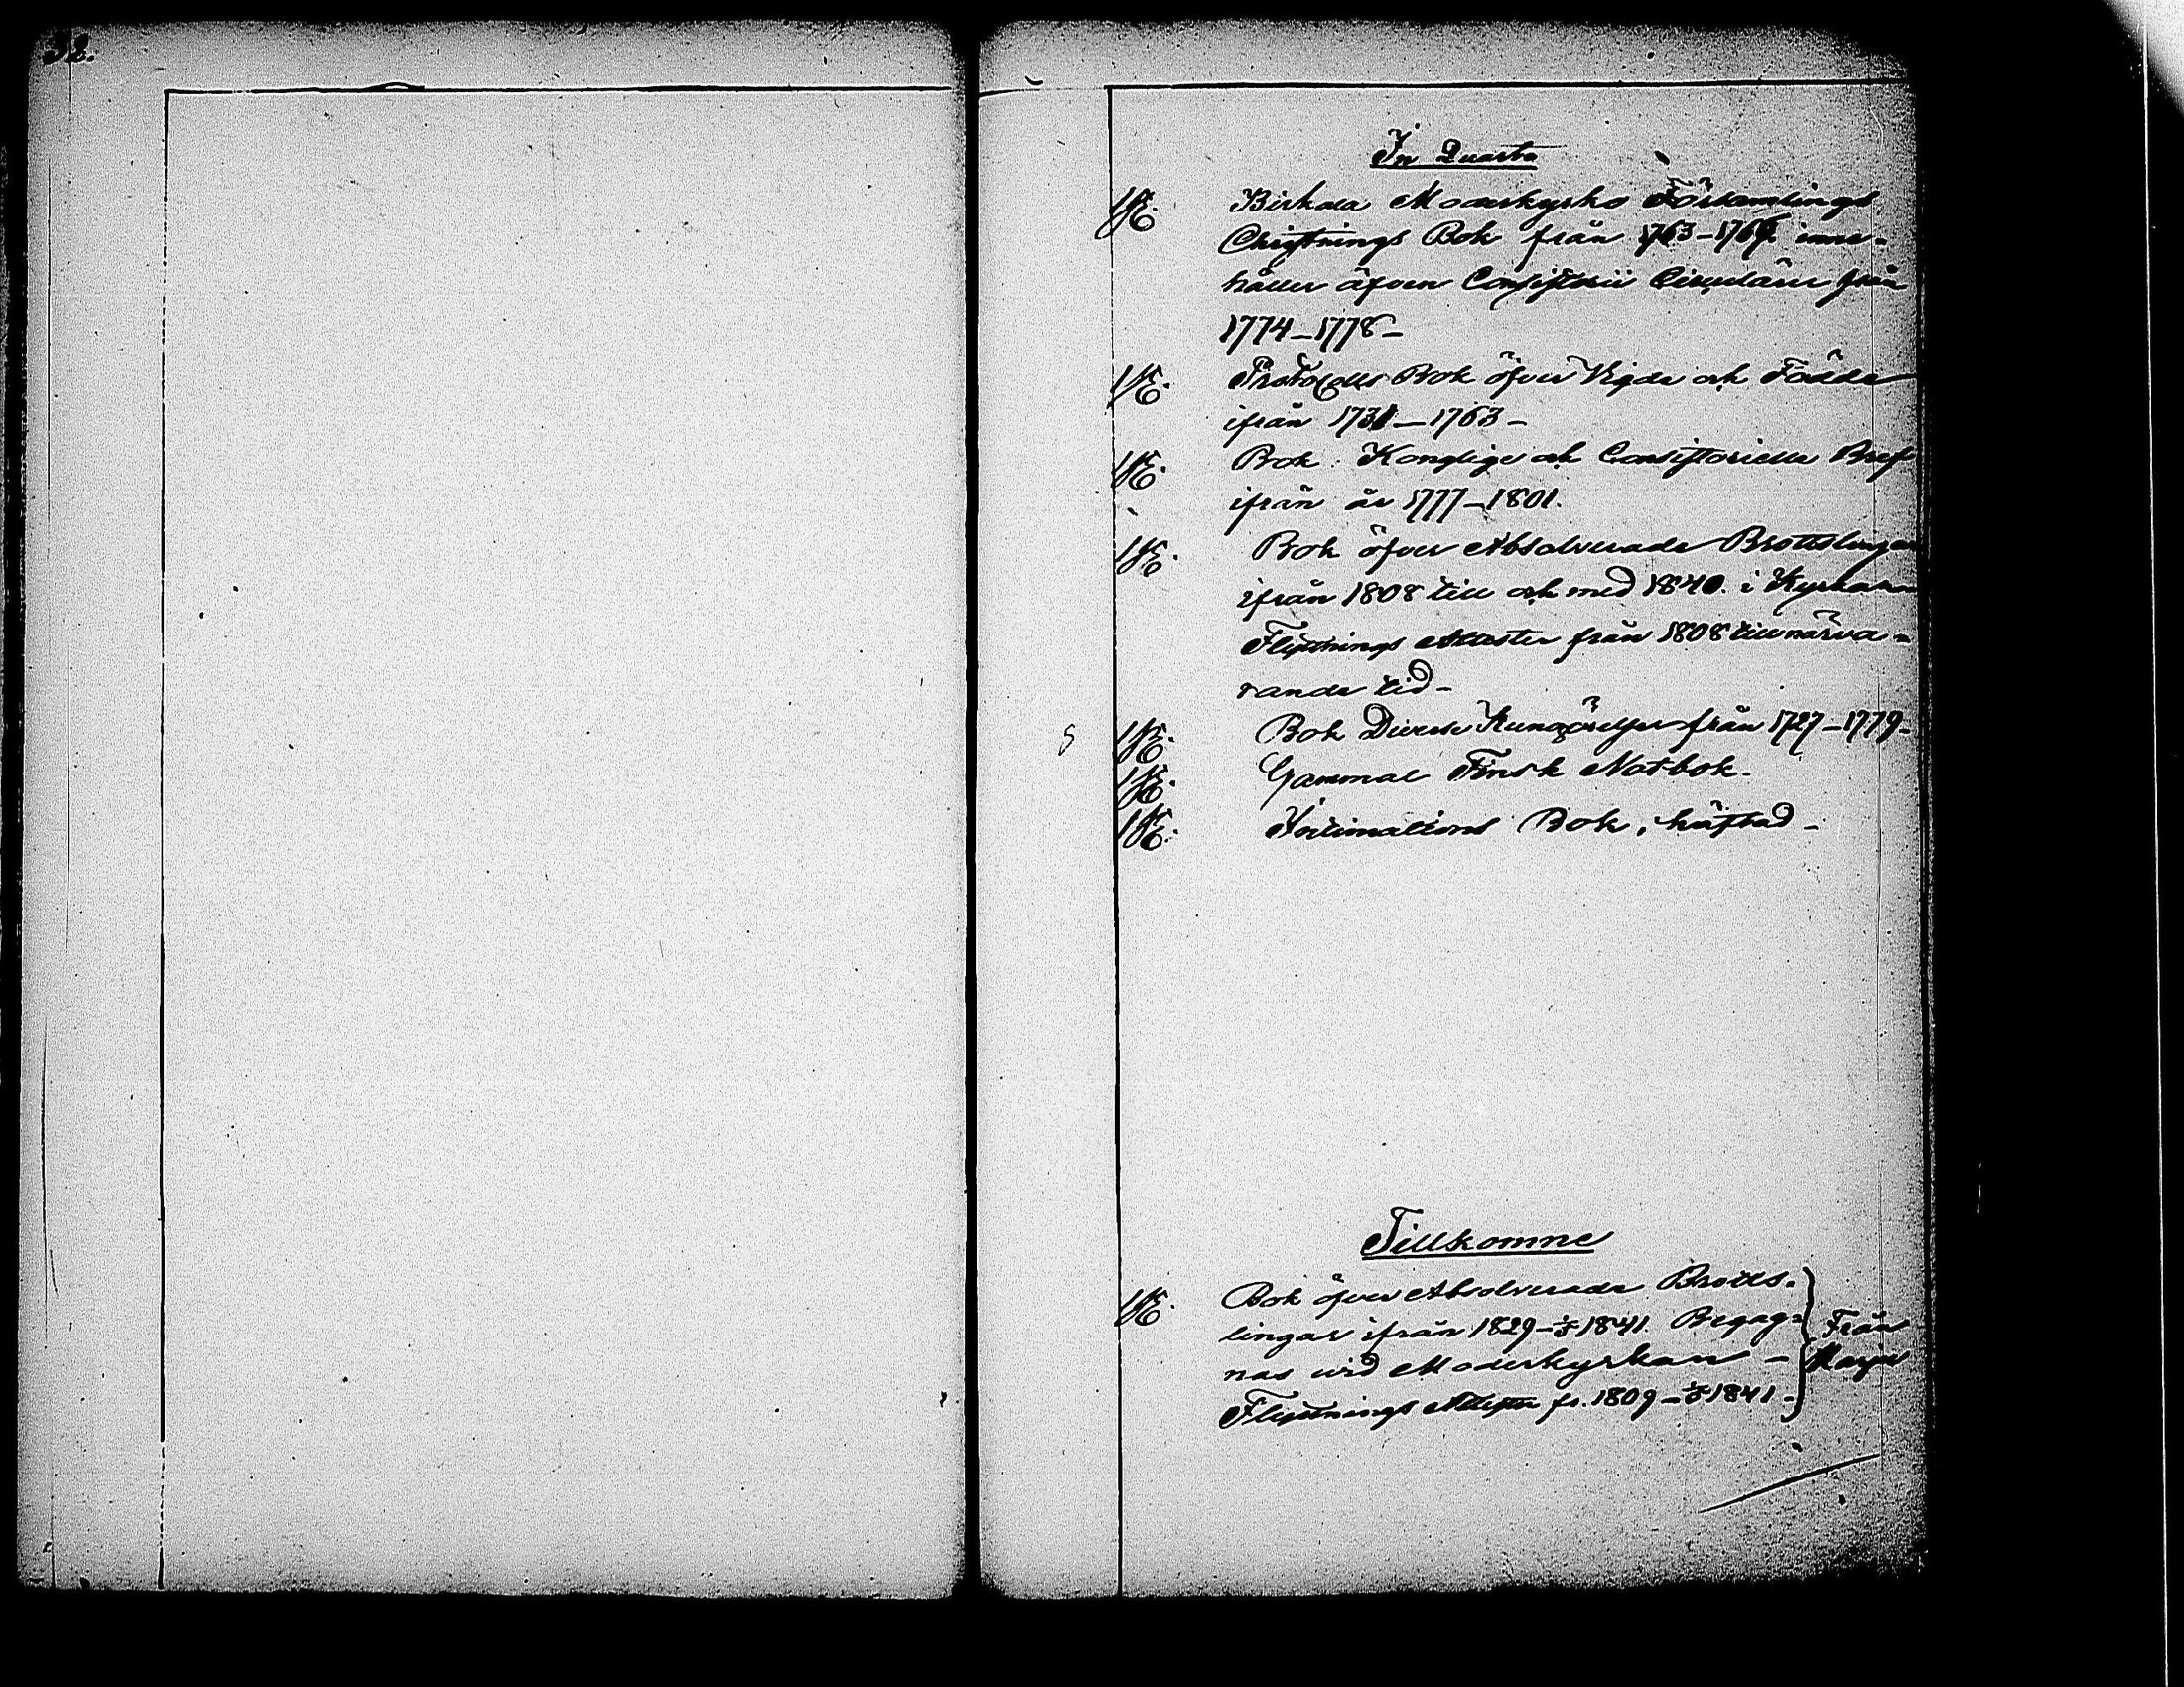 32.
In Quarto
1 St. Birkala Moderkyrko Församlings
Christnings Bok från 1763-1769. inne-
håller äfven Consistorii Circulärer från
1774-1778-
1 St. Protocolls Bok öfver Vigde och Födde
ifrån 1731-1763-
1 St. Bok. Konglige och Consistoriella Bref
ifrån år 1777-1801.
1 St. Bok öfver Absolverade Brottslingar
ifrån 1808 till och med 1840. i Kyrkan
Flyttnings Attester från 1808 till närva-
rande tid-
1 St. Bok Diverse Kungörelser från 1727-1779-
1 St. Gammal Finsk Notbok.
1 St. Bok, häftad-
Tillkomne
1 St. Bok öfver Absolverade Brotts-
lingar ifrån 1829-1/5 1841. Begag- Från
nas vid Moderkyrkan -
Flyttnings Attester fr. 1809-1/5 1841-